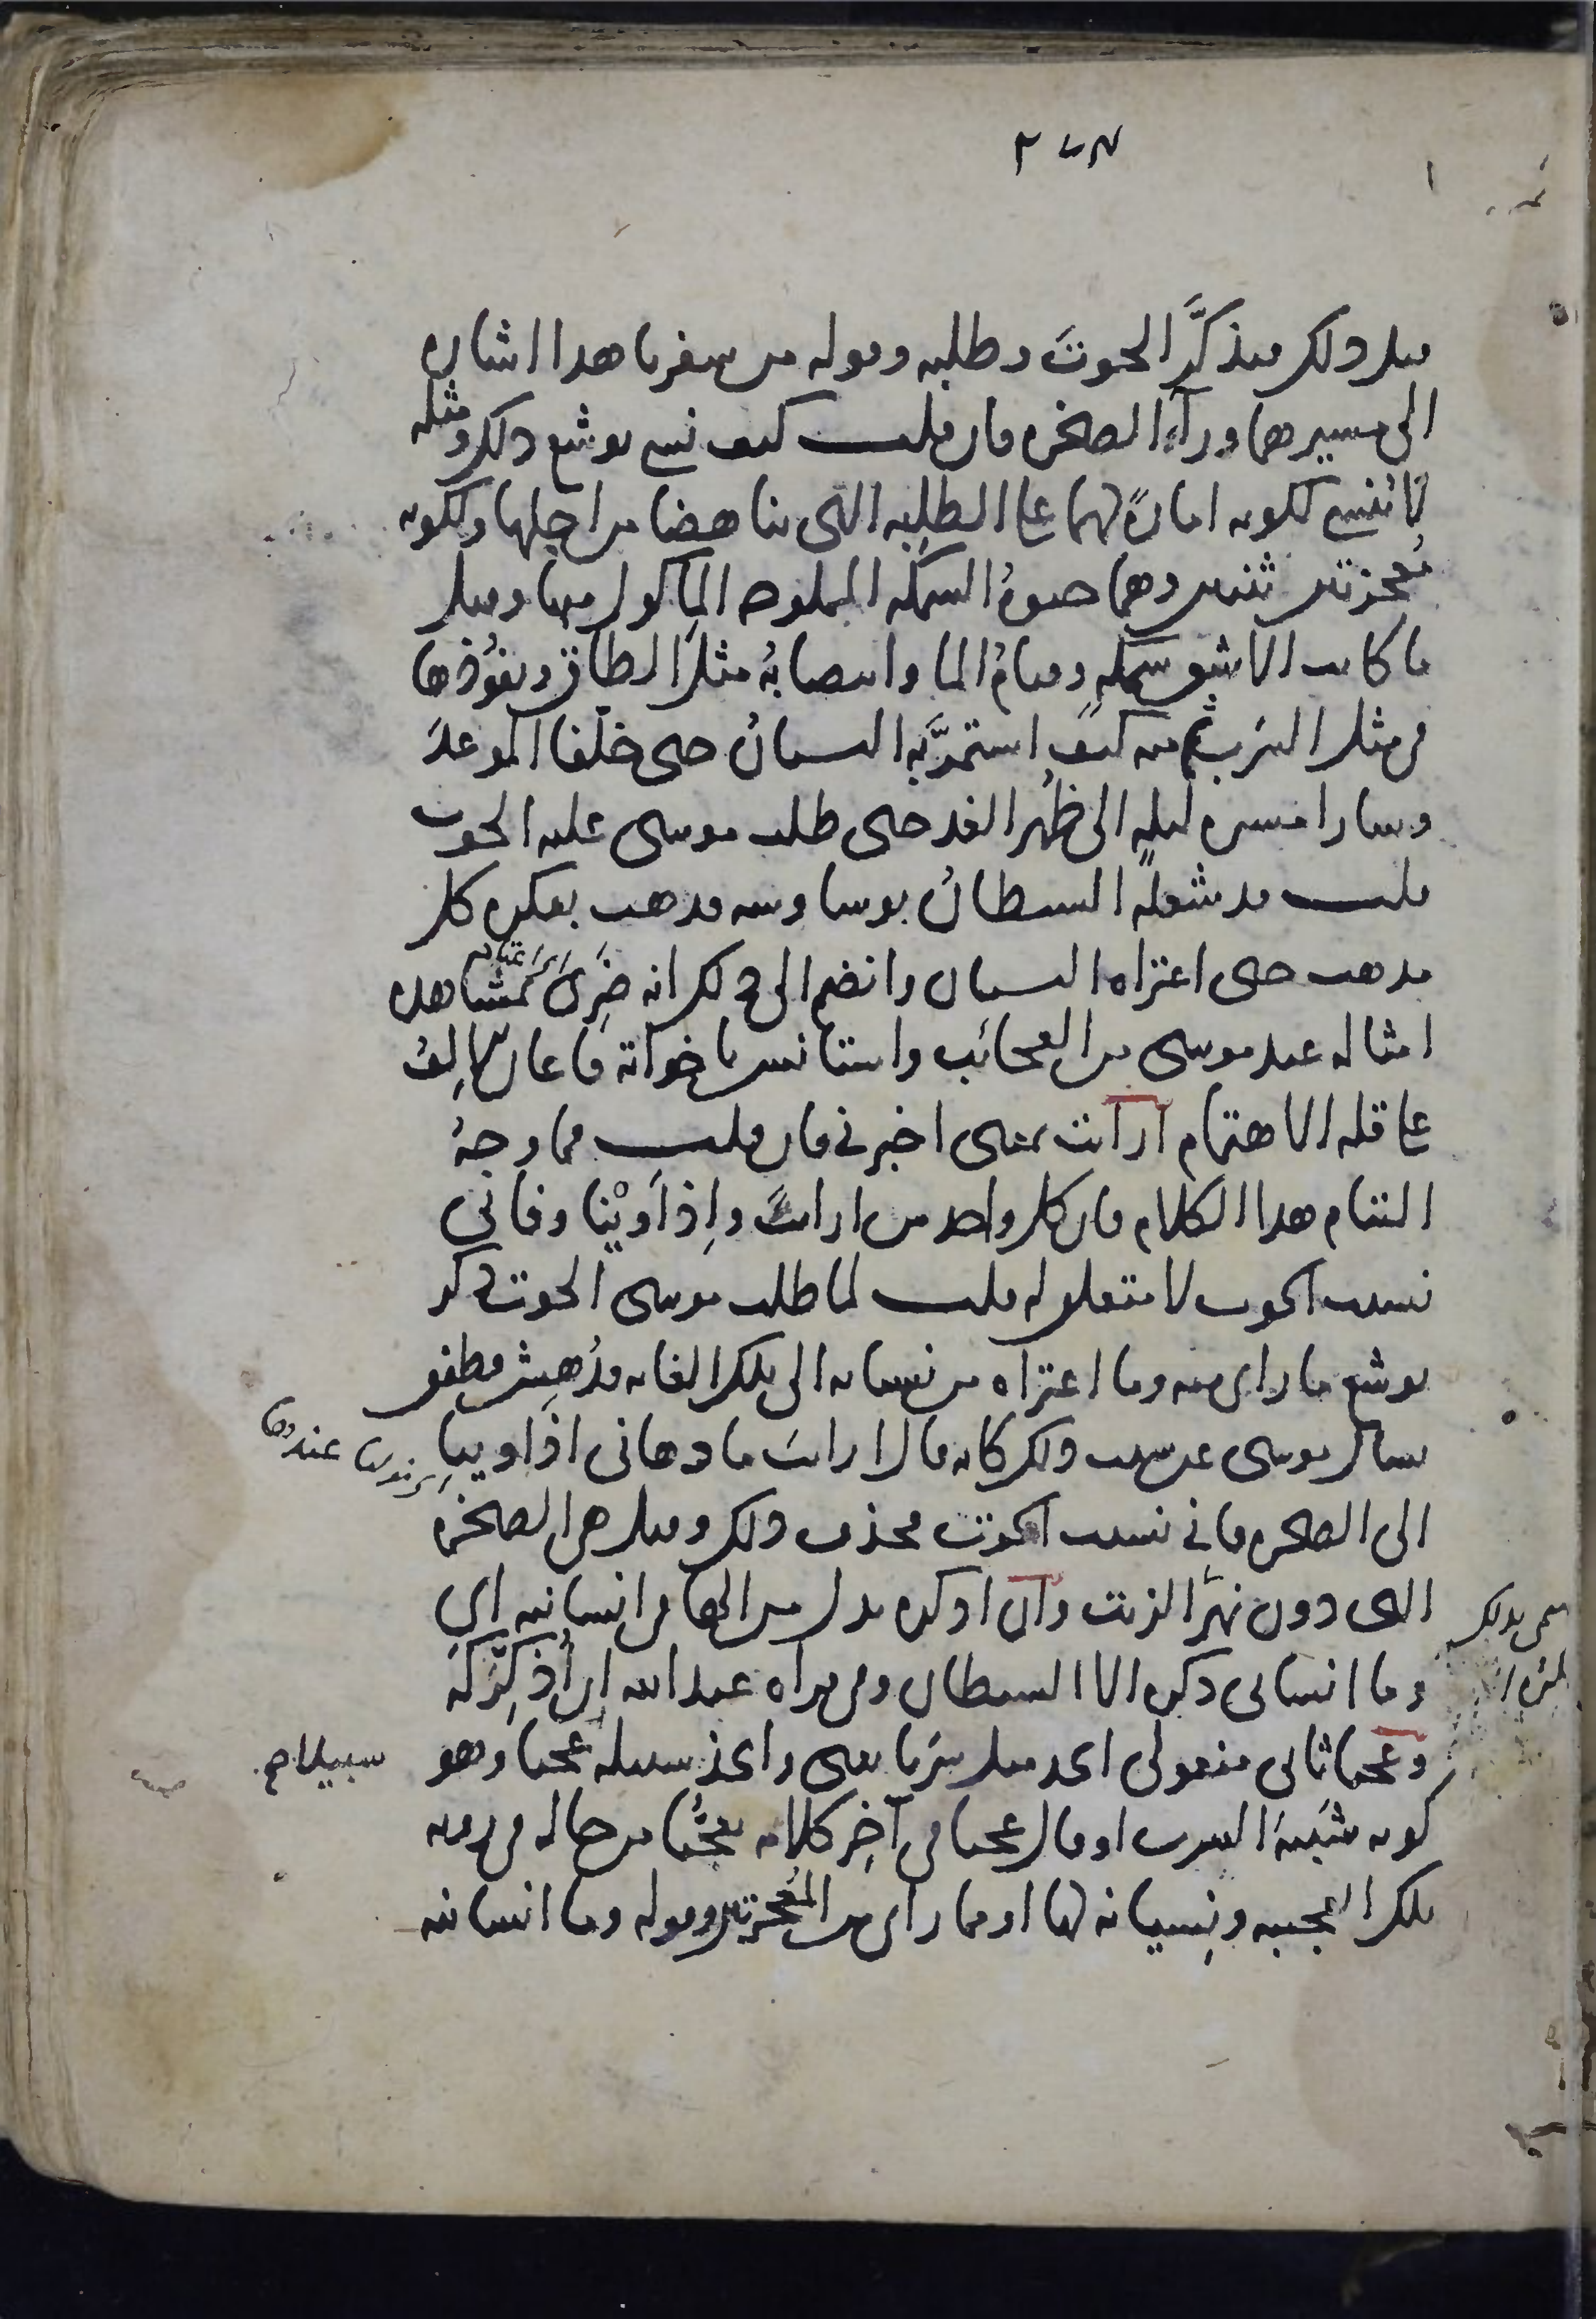 ٢٧٣
قبل ذلك فتذكَّر الحوتَ وطلبه وقوله من سفرنا هذا اشارة
الى مسيرهما ورآء الصخرة فان قلت كيف نسى يوشع ذلك ومثله
لا يُنسى لكونه امارةً لهما على الطلِبه التى تناهضا من اجلها ولكونه
مُعجزتين ثنتين وهما حيوةُ السمكه المملوحه المأكول منها وقيل
ما كانت الا شِق سمكه وقيامُ الما وانتصابُهُ مثلَ الطاق ونفوُذها
فى مثل السَرب ثم منه كيف استمرَّ به النسيانُ حتى خلّفا الموعدَ
وسارا مسيرة ليلهٍ الى ظُهر الغد حتى طلب موسى عليه الحوت
قلت قد شغلَهُ الشيطانُ بوساوسه فذهب بفكره كل
مذهب حتى اعتراه النسيان وانضم الى ذلك انه ضَرِىَ بمشاهدة
امثاله عند موسى من العجائب واستانس باخواته فاعان الإلفُ
على قلة الاهتمام أرأيت بمعنى اخبرنى فان قلت فما وجهُ
التئام هذا الكلام فان كل واحد من ارايتَ وإذ أَوَيْنا وفانّى
نسيت الحوت لا متعلق له قلت لما طلب موسى الحوت ذكر
يوشع ما راى منه وما اعتراه من نسيانه الى تلك الغايه فدُهِش فطفق
يسال موسى عن سبب ذلك كانه قال ارايتَ ما دهانى اذ اوينا
الى الصخره فانى نسيت الحوت فحذف ذلك وقيل هى الصخرة
التى دون نهر الزيت وأن اذكره بدل من الها فى انسانيه اى
وما انسانى ذكره الا الشيطان وفى قراه عبد الله ان أُذكِّرَكَهُ
وعجبا ثانى مفعولى اتخذ مثل سَرَبا يعنى واتخذ سبيله عجبا وهو سبيلا
كونه شَبيهَ السرب او قال عجبا فى آخِر كلامه تعجُّبا من حاله فى رويه
تلك العجيبه ونِسيانه لها او مما راى من المُعجزتين وقوله وما انسانيه